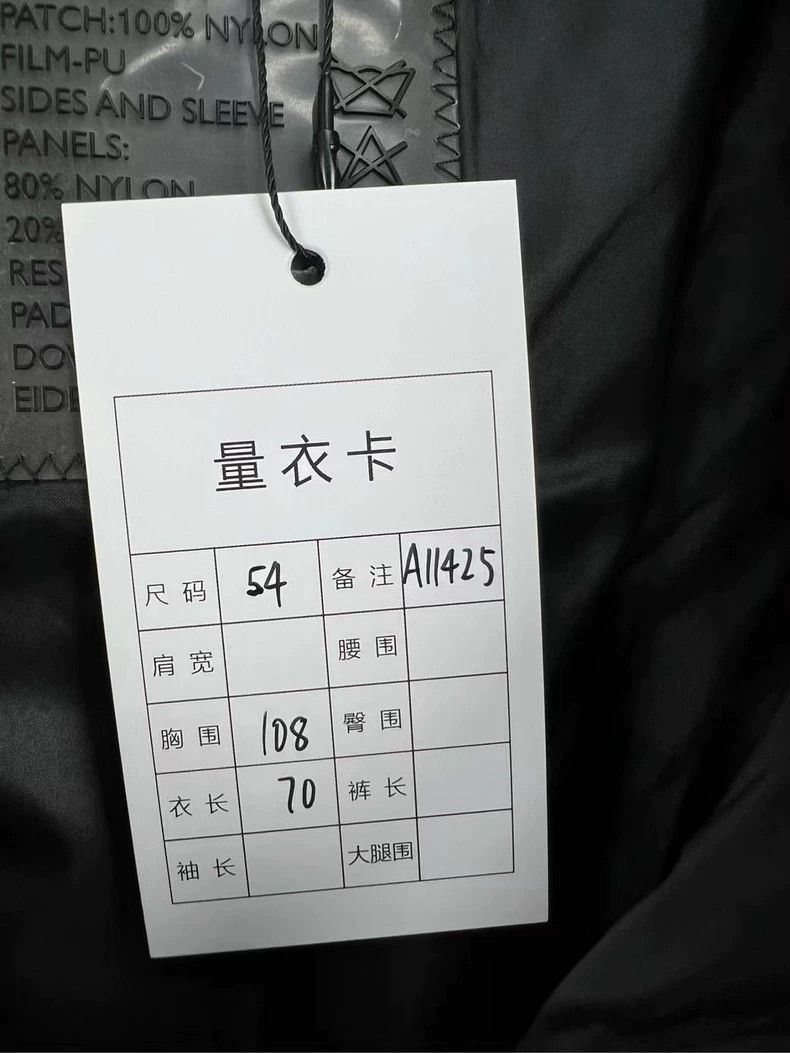 PATCH:100% NYLON
FILM-PU
SIDES AND SLEEVE
PANELS:
80% NYLON
20%
量衣卡
尺码 54 备注 A11425
肩宽 腰围
胸围 108 臀围
衣长 70 裤长
袖长 大腿围